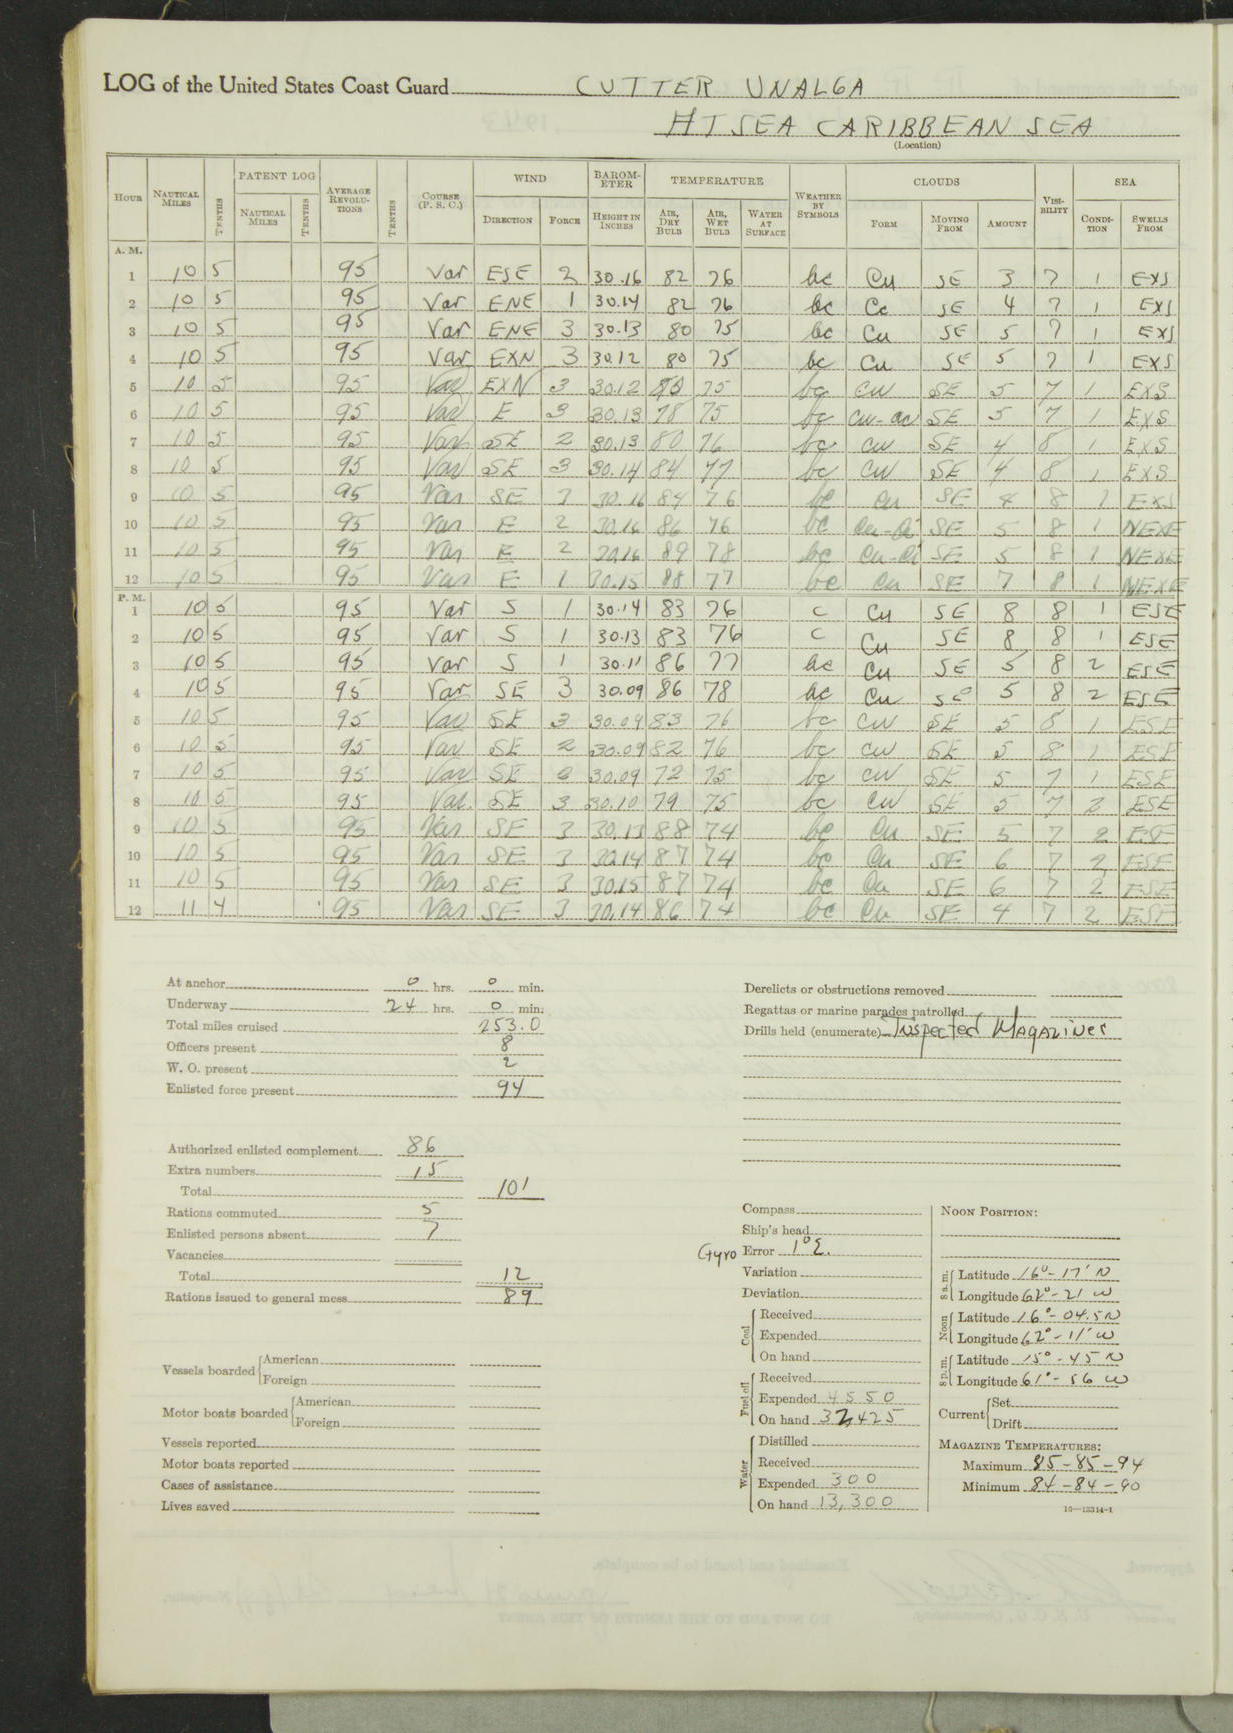 LOG of the United States Coast Guard CUTTER UNALGA
AT SEA CARIBBEAN SEA
(Location)
HOUR NAUTICAL MILES TENTHS PATENT LOG NAUTICAL MILES TENTHS AVERAGE REVOLUTIONS TENTHS COURSE (P. S. C.) WIND DIRECTION FORCE BAROMETER HEIGHT IN INCHES TEMPERATURE AIR, DRY BULB AIR, WET BULB WATER AT SURFACE WEATHER BY SYMBOLS CLOUDS FORM MOVING FROM AMOUNT VISIBILITY SEA CONDITION SWELLS FROM
A. M.
1 10 5 95 Var ESE 2 30.16 82 76 bc Cu SE 3 7 1 EXS
2 10 5 95 Var ENE 1 30.14 82 76 bc Cc SE 4 7 1 EXS
3 10 5 95 Var ENE 3 30.13 80 75 bc Cu SE 5 7 1 EXS
4 10 5 95 Var EXN 3 30.12 80 75 bc Cu SE 5 7 1 EXS
5 10 5 95 Var EXN 3 30.12 75 bc cu SE 5 7 1 EXS
6 10 5 95 Var E 3 30.13 78 75 bc cu-ac SE 5 7 1 EXS
7 10 5 95 Var SE 2 30.13 80 76 bc cu SE 4 8 1 EXS
8 10 5 95 Var SE 3 30.14 84 77 bc cu SE 4 8 1 EXS
9 10 5 95 Var SE 30.16 84 76 bc Cu SE 4 8 1 EXS
10 10 5 95 Var E 2 30.16 86 76 bc Cu-Ci SE 5 8 1 NEXE
11 10 5 95 Var E 2 30.16 89 78 bc Cu-Ci SE 5 8 1 NEXE
12 10 5 95 Var E 1 30.15 88 77 bc Cu SE 7 8 1 NEXE
P. M.
1 10 5 95 Var S 1 30.14 83 76 c Cu SE 8 8 1 ESE
2 10 5 95 Var S 1 30.13 83 76 c Cu SE 8 8 1 ESE
3 10 5 95 Var S 1 30.11 86 77 bc Cu SE 5 8 2 ESE
4 10 5 95 Var SE 3 30.09 86 78 bc Cu SE 5 8 2 ESE
5 10 5 95 Var SE 3 30.09 83 76 bc cu SE 5 8 1 ESE
6 10 5 95 Var SE 2 30.09 82 76 bc cu SE 5 8 1 ESE
7 10 5 95 Var SE 30.09 72 75 bc cu SE 5 7 1 ESE
8 10 5 95 Var SE 3 30.10 79 75 bc cu SE 5 7 2 ESE
9 10 5 95 Var SE 3 30.13 88 74 bc Cu SE 5 7 2 ESE
10 10 5 95 Var SE 3 30.14 87 74 bc Cu SE 6 7 2 ESE
11 10 5 95 Var SE 3 30.15 87 74 bc Cu SE 6 7 2 ESE
12 11 4 95 Var SE 3 30.14 86 74 bc Cu SE 4 7 2 ESE
At anchor 0 hrs. 0 min.
Underway 24 hrs. 0 min.
Total miles cruised 253.0
Officers present 8
W. O. present 2
Enlisted force present 94
Authorized enlisted complement 86
Extra numbers 15
Total 101
Rations commuted 5
Enlisted persons absent 7
Vacancies
Total 12
Rations issued to general mess 89
Vessels boarded
American
Foreign
Motor boats boarded
American
Foreign
Vessels reported
Motor boats reported
Cases of assistance
Lives saved
Derelicts or obstructions removed
Regattas or marine parades patrolled
Drills held (enumerate) Inspected Magazines
Compass
Ship's head
Gyro Error 1° E.
Variation
Deviation
Coal
Received
Expended
On hand
Fuel oil
Received
Expended 4550
On hand 32,425
Water
Distilled
Received
Expended 300
On hand 13,300
NOON POSITION:
8 a. m.
Latitude 16°-17' N
Longitude 62°-21 W
Noon
Latitude 16°-04.5 N
Longitude 62°-11' W
8 p. m.
Latitude 15°-45 N
Longitude 61°-56 W
Current
Set
Drift
MAGAZINE TEMPERATURES:
Maximum 85-85-94
Minimum 84-84-90
16—13314-1